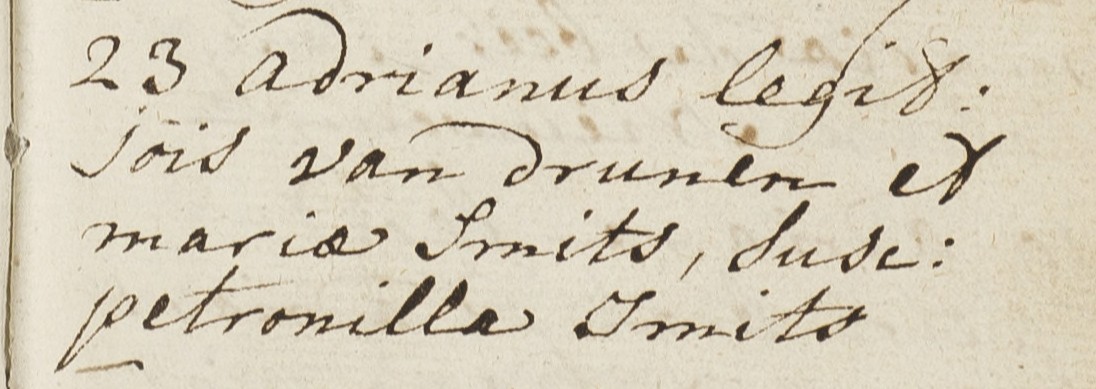 23 Adrianus legit:
Jois van Drunen et
mariæ Smits, Susc:
petronilla Smits